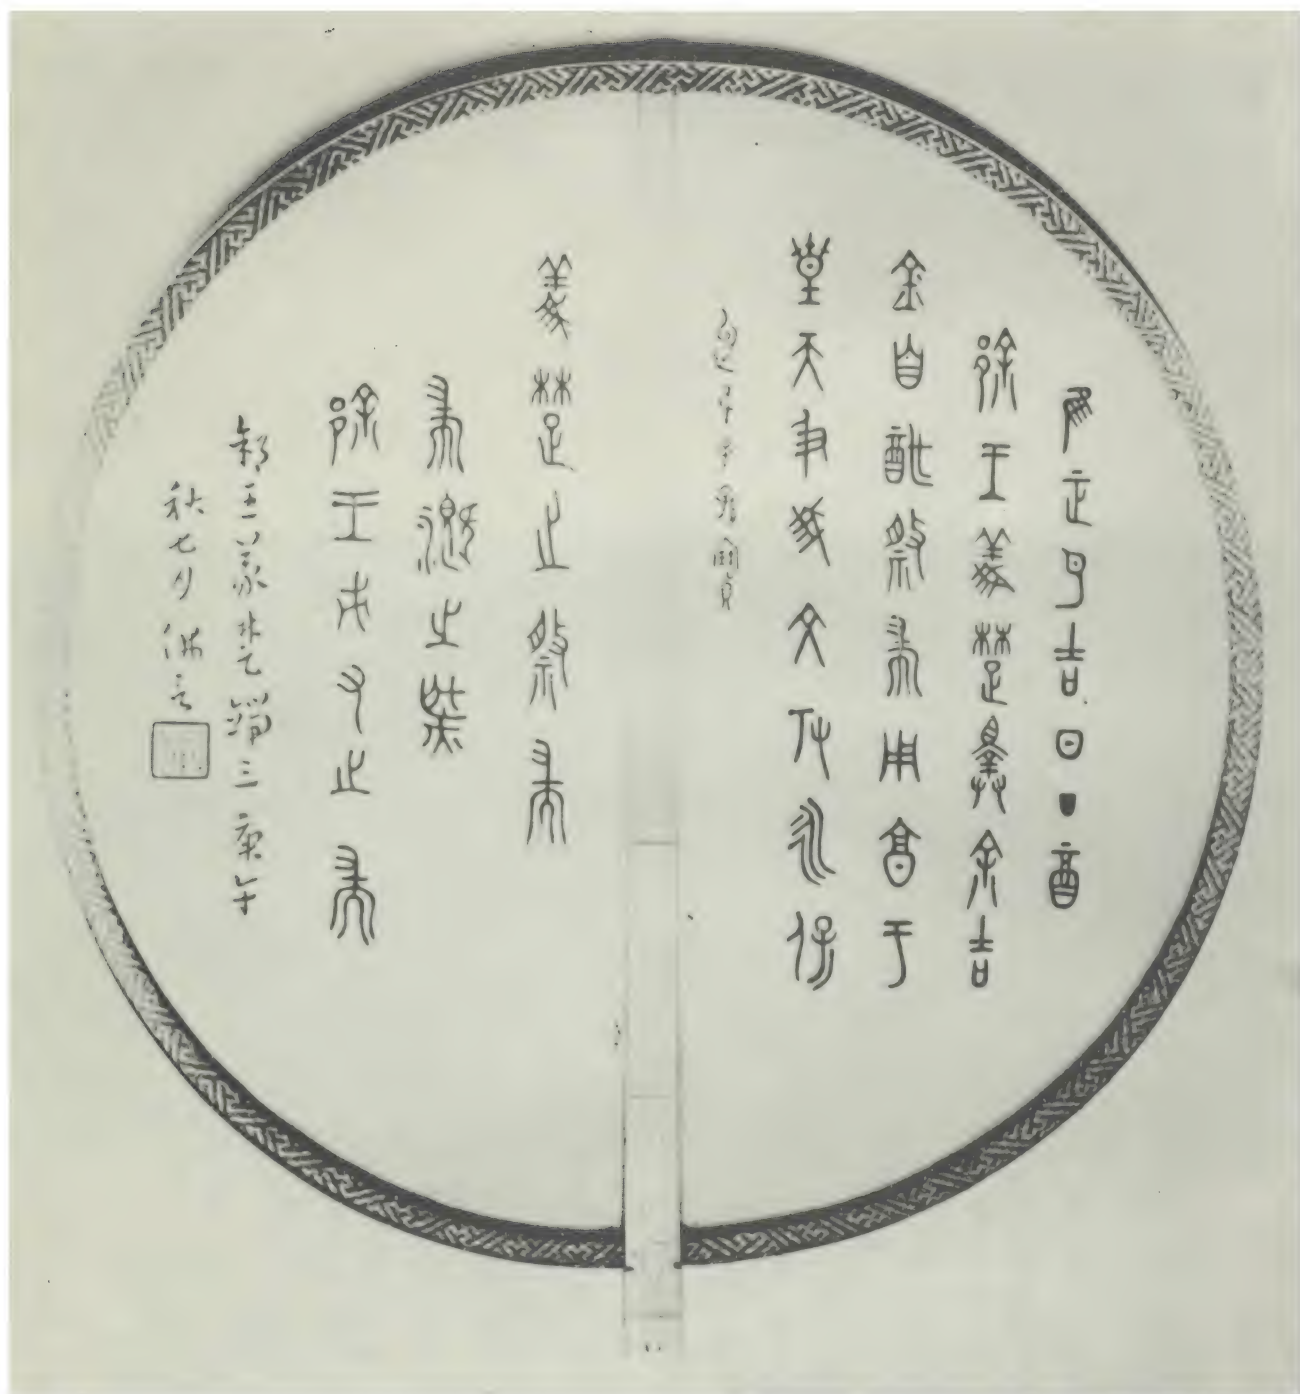 隹正月吉日丁酉
郐王義楚擇余吉
金自酢祭耑用享于
皇天及我文考永保
身子孫寶
義楚之祭耑
耑之
郐王又之耑
郐王義楚鍴三庚午
秋七月